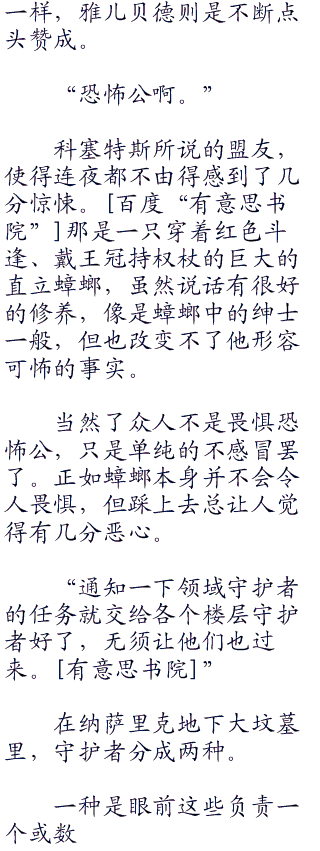 一样，雅儿贝德则是不断点
头赞成。
“恐怖公啊。”
科塞特斯所说的盟友，
使得连夜都不由得感到了几
分惊悚。[百度“有意思书
院”]那是一只穿着红色斗
逢、戴王冠持权杖的巨大的
直立蟑螂，虽然说话有很好
的修养，像是蟑螂中的绅士
一般，但也改变不了他形容
可怖的事实。
当然了众人不是畏惧恐
怖公，只是单纯的不感冒罢
了。正如蟑螂本身并不会令
人畏惧，但踩上去总让人觉
得有几分恶心。
“通知一下领域守护者
的任务就交给各个楼层守护
者好了，无须让他们也过
来。[有意思书院]”
在纳萨里克地下大坟墓
里，守护者分成两种。
一种是眼前这些负责一
个或数